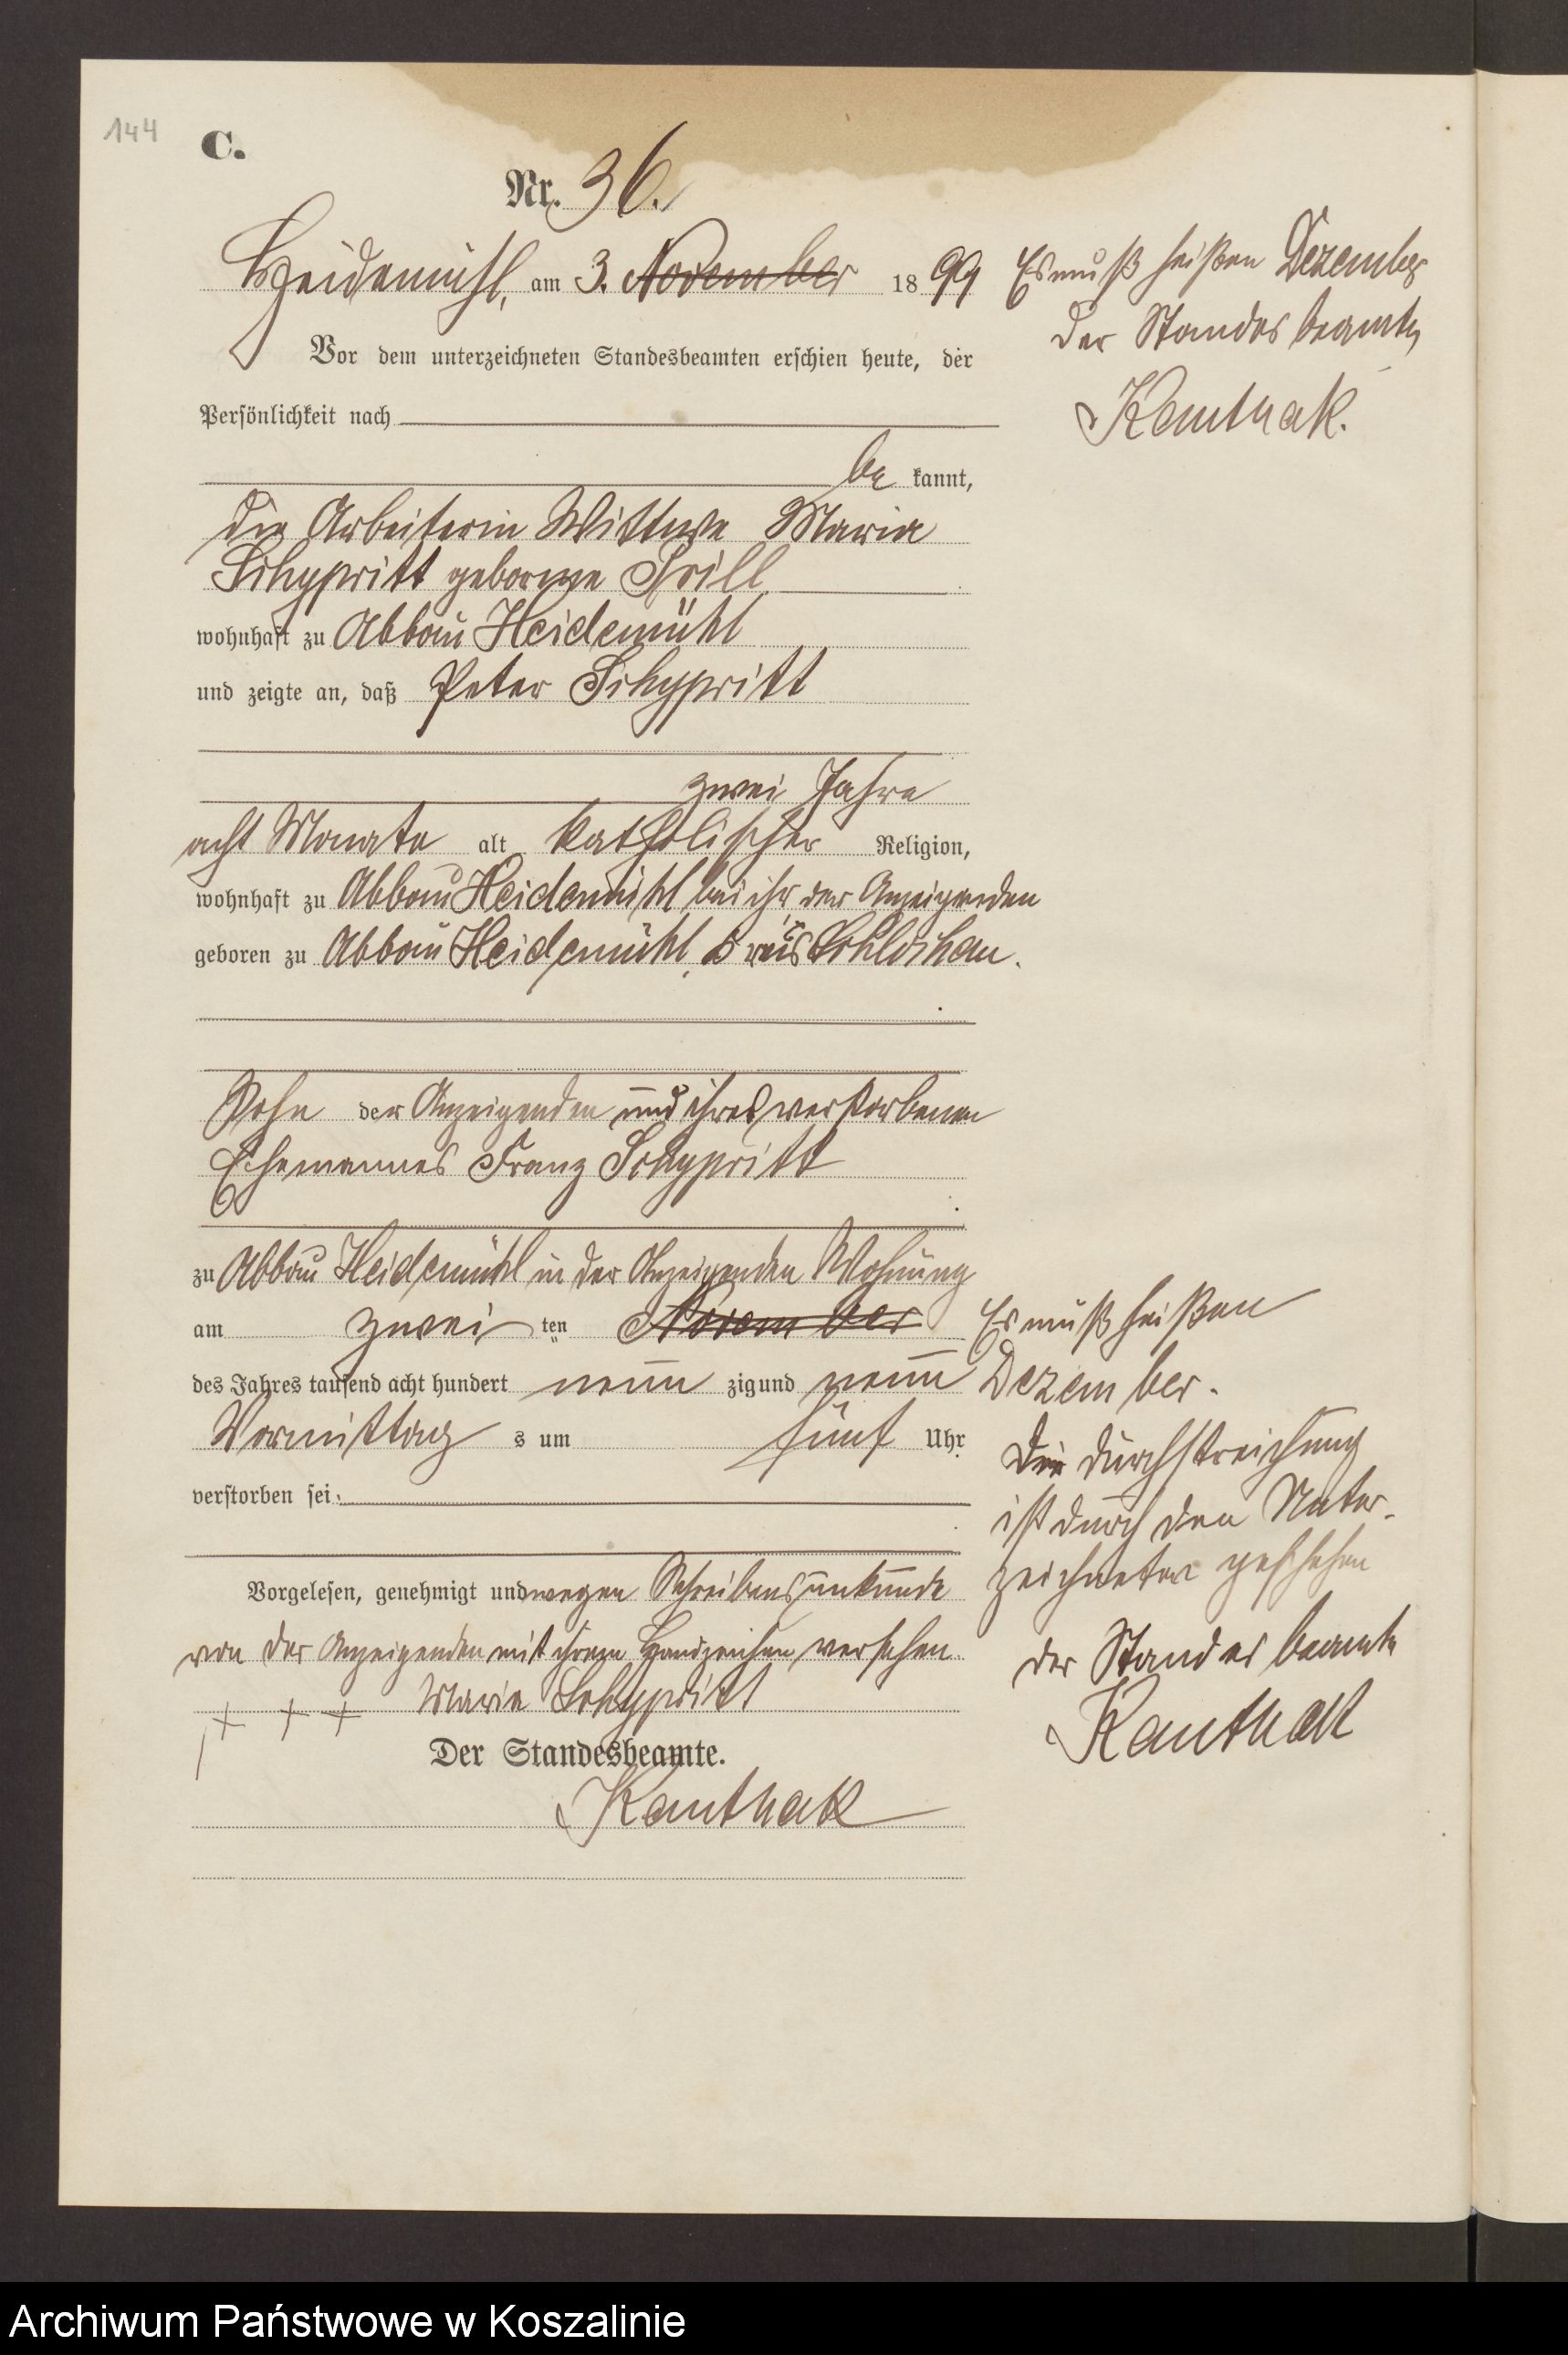 144
C.
Nr. 36.
Heidemühl, am 3. November 1899
Es muß heißen Dezember
der Standesbeamte
Kanthak.
Vor dem unterzeichneten Standesbeamten erschien heute, der
Persönlichkeit nach
be kannt,
die Arbeiterin Wittwe Maria
Schypritt geborene Prill
wohnhaft zu Abbau Heidemühl
und zeigte an, daß Peter Schypritt
zwei Jahre
acht Monate alt katholischer Religion,
wohnhaft zu Abbau Heidemühl bei ihr der Anzeigenden
geboren zu Abbau Heidemühl, Kreis Schlochau.
Sohn der Anzeigenden und ihres verstorbenen
Ehemannes Franz Schypritt
zu Abbau Heidemühl in der Anzeigenden Wohnung
am zwei ten November
des Jahres tausend acht hundert neun zig und neun
Vormittag s um fünf Uhr
verstorben sei.
Es muß heißen
Dezember.
Die Durchstreichung
ist durch den Unter-
zeichneten geschehen
der Standesbeamte
Kanthak
Vorgelesen, genehmigt und wegen Schreibensunkunde
von der Anzeigenden mit ihrem Handzeichen versehen
+ + + Maria Schypritt
Der Standesbeamte.
Kanthak
Archiwum Państwowe w Koszalinie